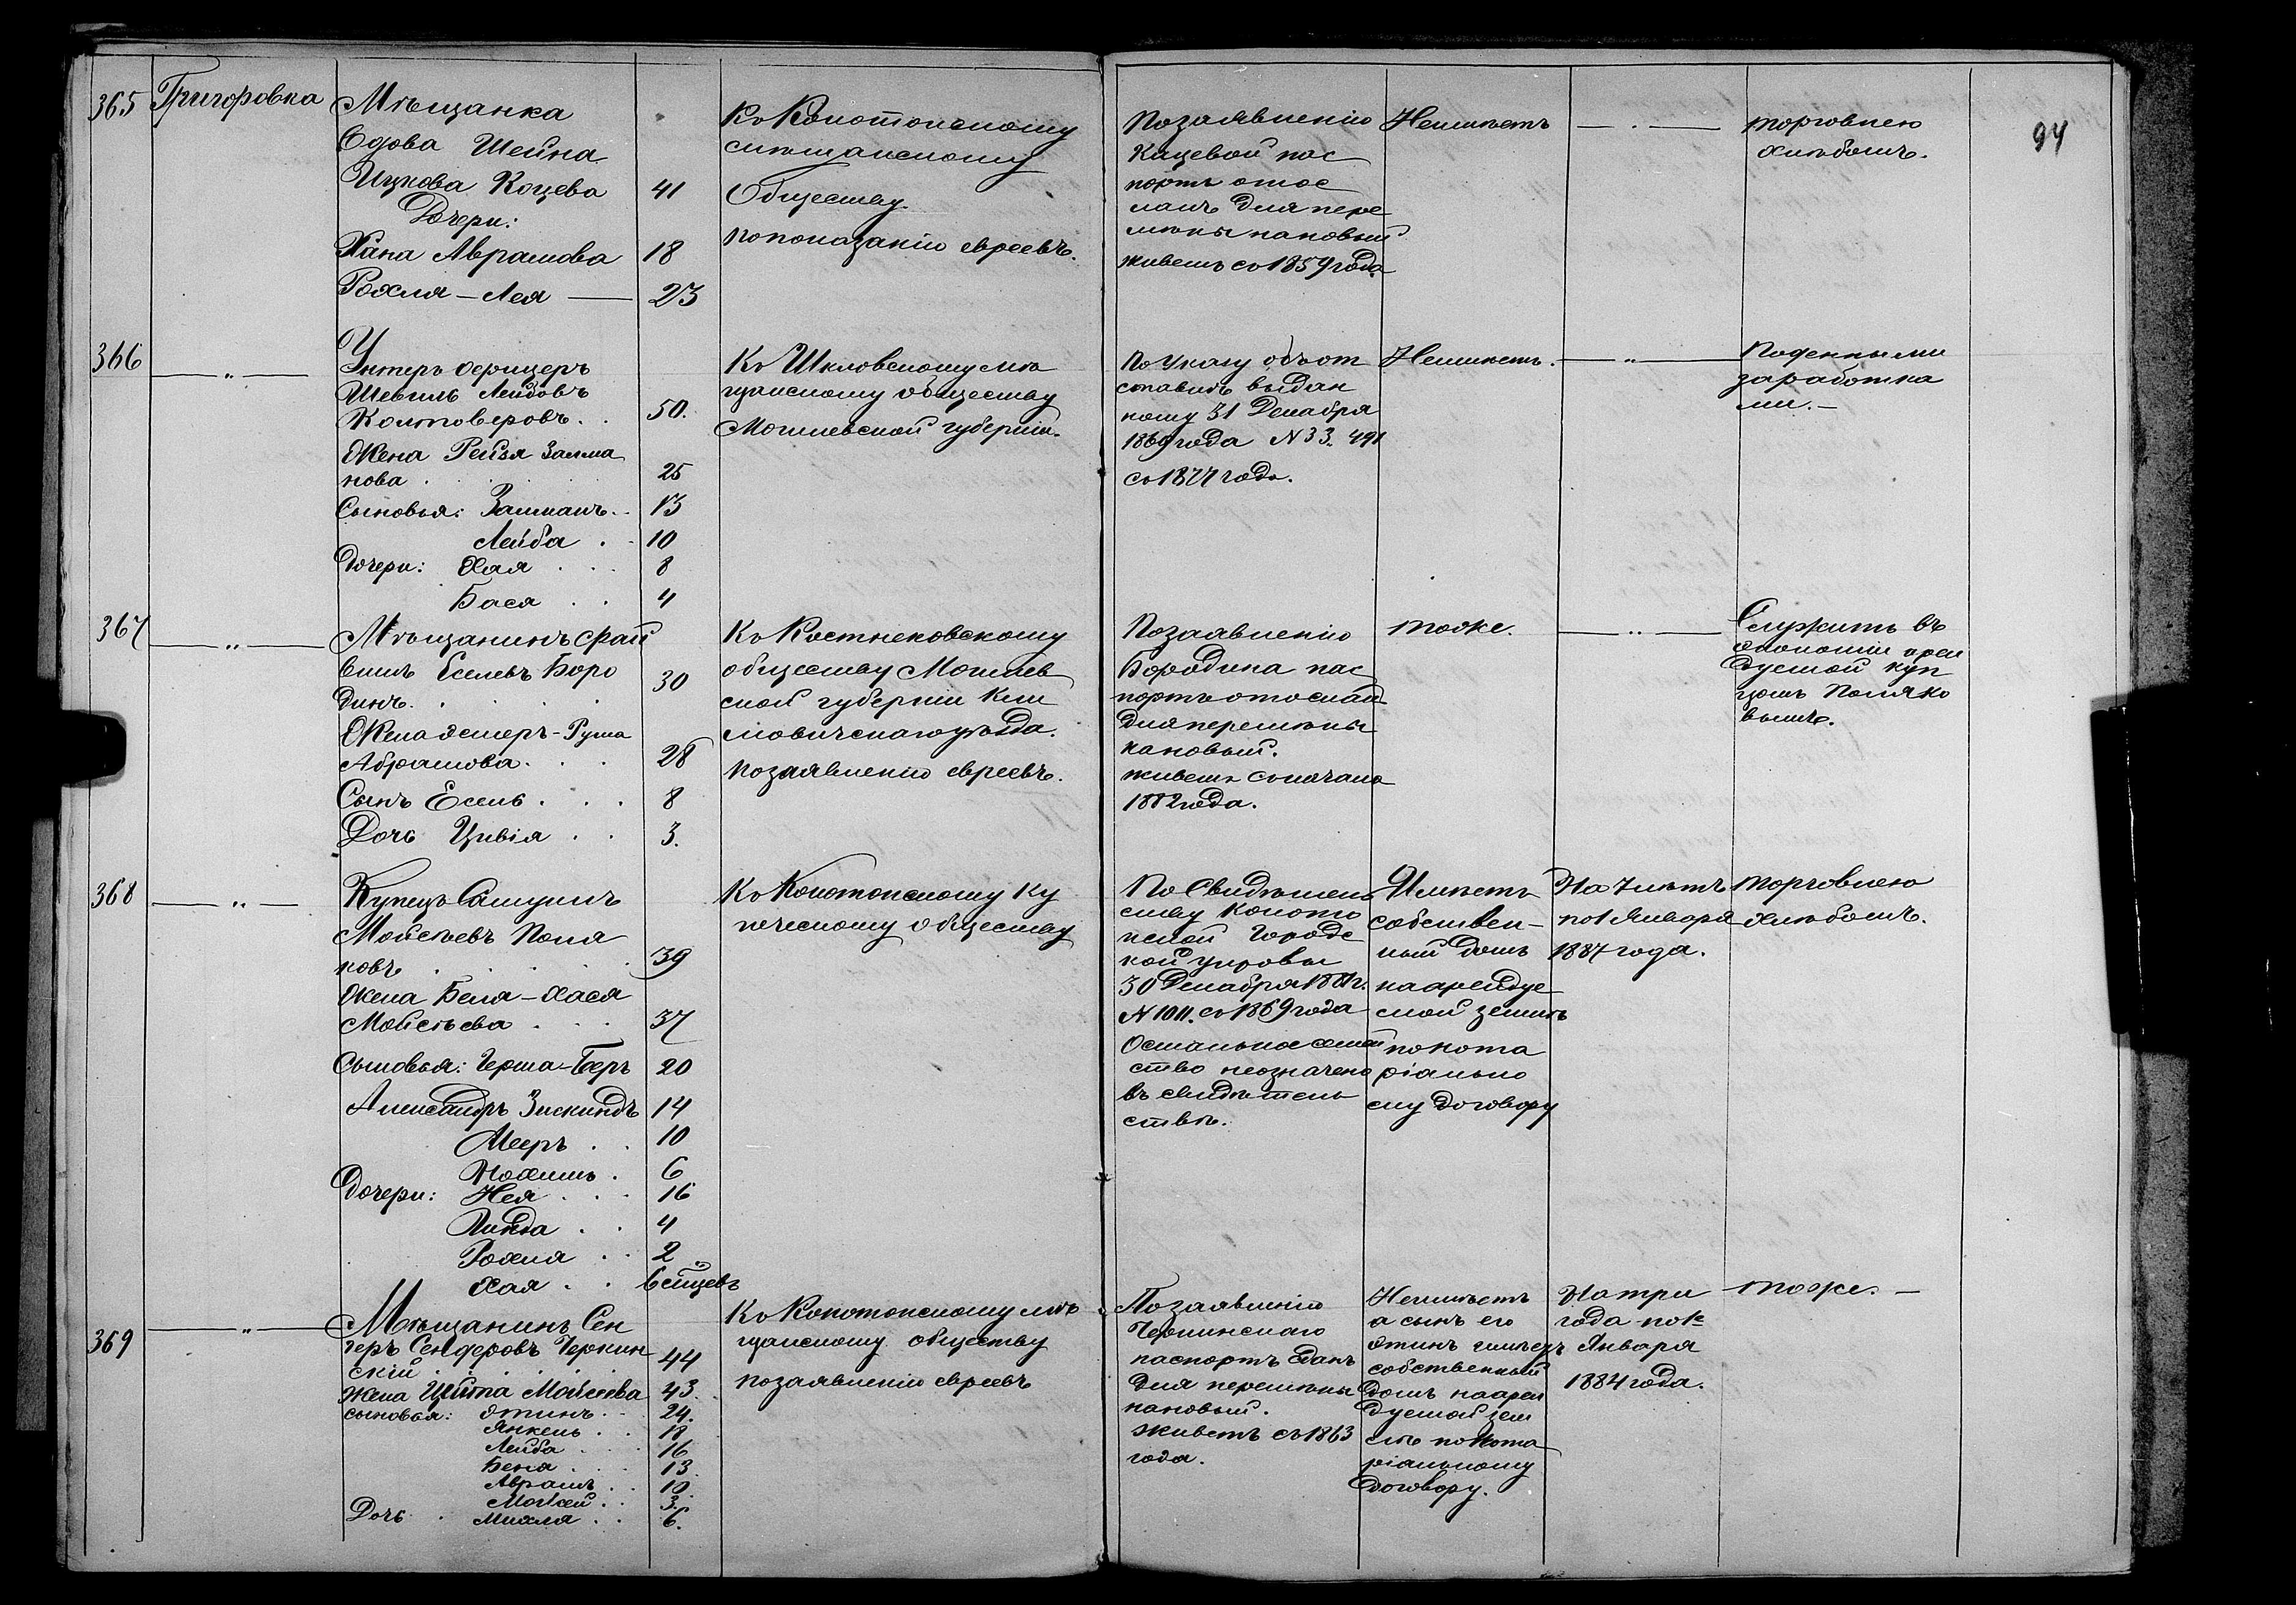 94
365 Григоровка Мѣщанка
Вдова Шейна
Ицкова Коцева 41
Дочери:
Хана Аврамова 18
Рохля-Лея — 23
Къ Конотопскому
мѣщанскому
Обществу
по показанію евреевъ.
По заявленію
Кацевой пас
портъ отос
ланъ для пере
мѣны на новый
живетъ съ 1859 года
Неимѣетъ
— . —
торговлею
хлѣбомъ.
366 — „ — Унтеръ офицеръ
Шевель Лейбовъ
Колтоверовъ. . 50.
Жена Рейзя Залма
нова . 25
Сыновья: Залманъ. 13
Лейба . 10
Дочери: Хая . . . 8
Бася . . 4
Къ Шкловскому мѣ
щанскому обществу
Могилевской губерніи.
По Указу объ от
ставкѣ выдан
ному 31 Декабря
1869 года N 33. 491
съ 1877 года.
Неимѣетъ.
— „ —
Поденными
заработка
ми. —
367 — „ — Мѣщанинъ Фай
вишъ Еселевъ Боро
динъ. 30
Жена Эстеръ-Рума
Абрамова. . . 28
Сынъ Есель . . . 8
Дочь Цивія . . 3.
Къ Костюковскому
обществу Могилев
ской губерніи Кли
мовичскаго уѣзда.
по заявленію евреевъ.
По заявленію
Бородина пас
портъ отослан
для перемѣны
на новый.
живетъ съ начала
1882 года.
тоже.
— „ —
Служитъ въ
экономіи арен
дуемой куп
цомъ Поляко
вымъ.
368 — „ — Купецъ Самуилъ
Мойсѣевъ Поля
ковъ . . . 39
Жена Бейля-Хася
Мойсѣева . . . 37
Сыновья: Герша-Беръ 20
Александръ Зискиндъ 14
Мееръ . . 10
Нохимъ . 6
Дочери: Нея . . . 16
Линда . . 4
Рохля . . 2
Хая . . 6 мѣсяцевъ
Къ Конотопскому Ку
печескому обществу
По Свидѣтель
ству Коното
пской Городс
кой управы
30 Декабря 1881 г.
N 1011. съ 1869 года
Остальное семей
ство не означено
въ свидѣтель
ствѣ.
Имѣетъ
собствен-
ный домъ
на арендуе
мой землѣ
по нота
ріально
му договору
На 7 лѣтъ
по 1 Января
1887 года.
торговлею
хлѣбомъ.
369 — „ — Мѣщанинъ Сен
деръ Сендеровъ Черкин
скій . . . . 44
Жена Цейтл Мойсѣева 43.
сыновья: Этинъ. . 24.
Янкель . . 18
Лейба . . 16
Беня . . 13
Аврамъ . . 10
Мойсей . . 3.
Дочь . Михля . . 6.
Къ Конотопскому мѣ
щанскому обществу
по заявленію евреевъ
По заявленію
Черкинскаго
паспортъ сданъ
для перемѣны
на новый.
живетъ съ 1863
года.
Неимѣетъ
а сынъ его
Этинъ имѣетъ
собственный
домъ на арен
дуемой зем
лѣ по нота
ріальному
договору.
На три
года по 1е
Января
1884 года.
тоже. —